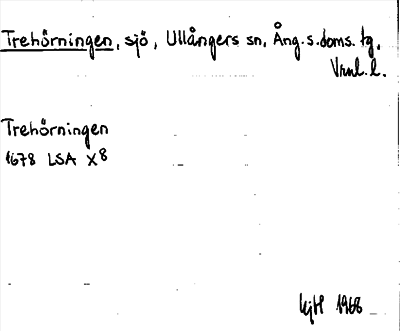 Trehörningen, sjö, Ullångers sn, Ång.s.doms. tg.
Vrnl. l.
Trehörningen
1678 LSA X8
1968